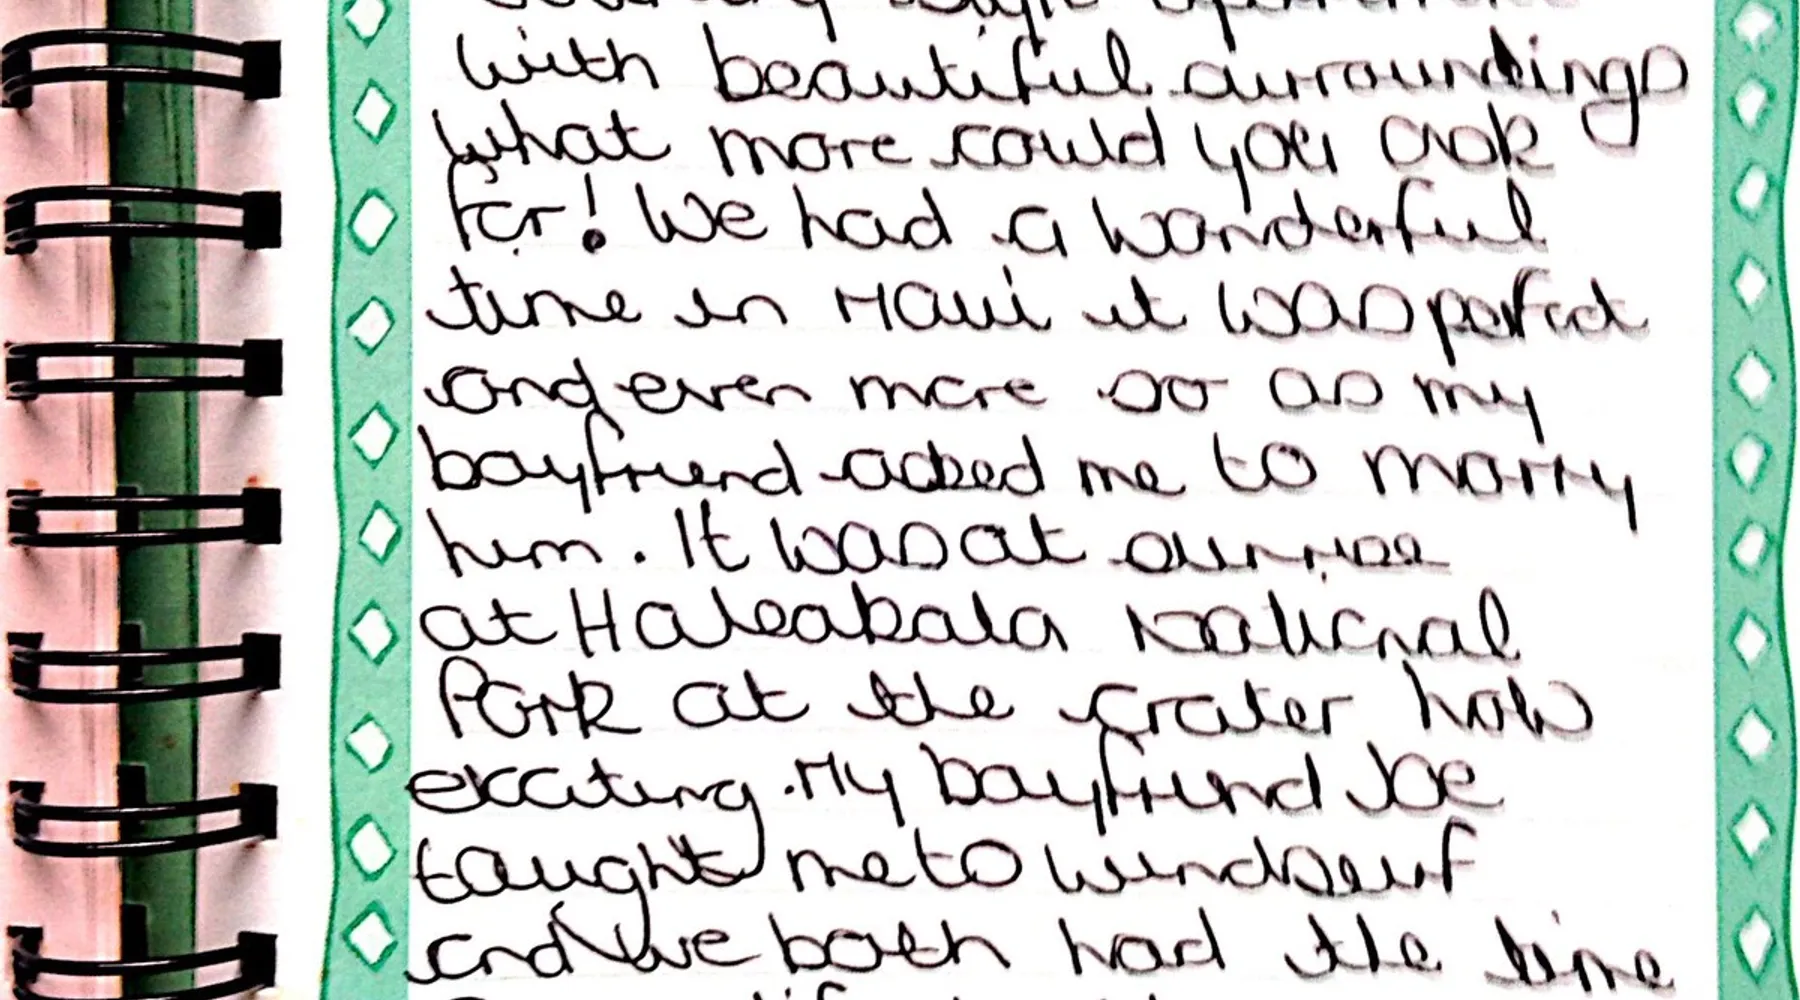 with beautiful surroundings
what more could you ask
for! We had a wonderful
time in Maui it was perfect
and even more so as my
boyfriend asked me to marry
him. It was at sunrise
at Haleakala National
Park at the crater how
exciting. My boyfriend Joe
taught me to windsurf
and we both had the time